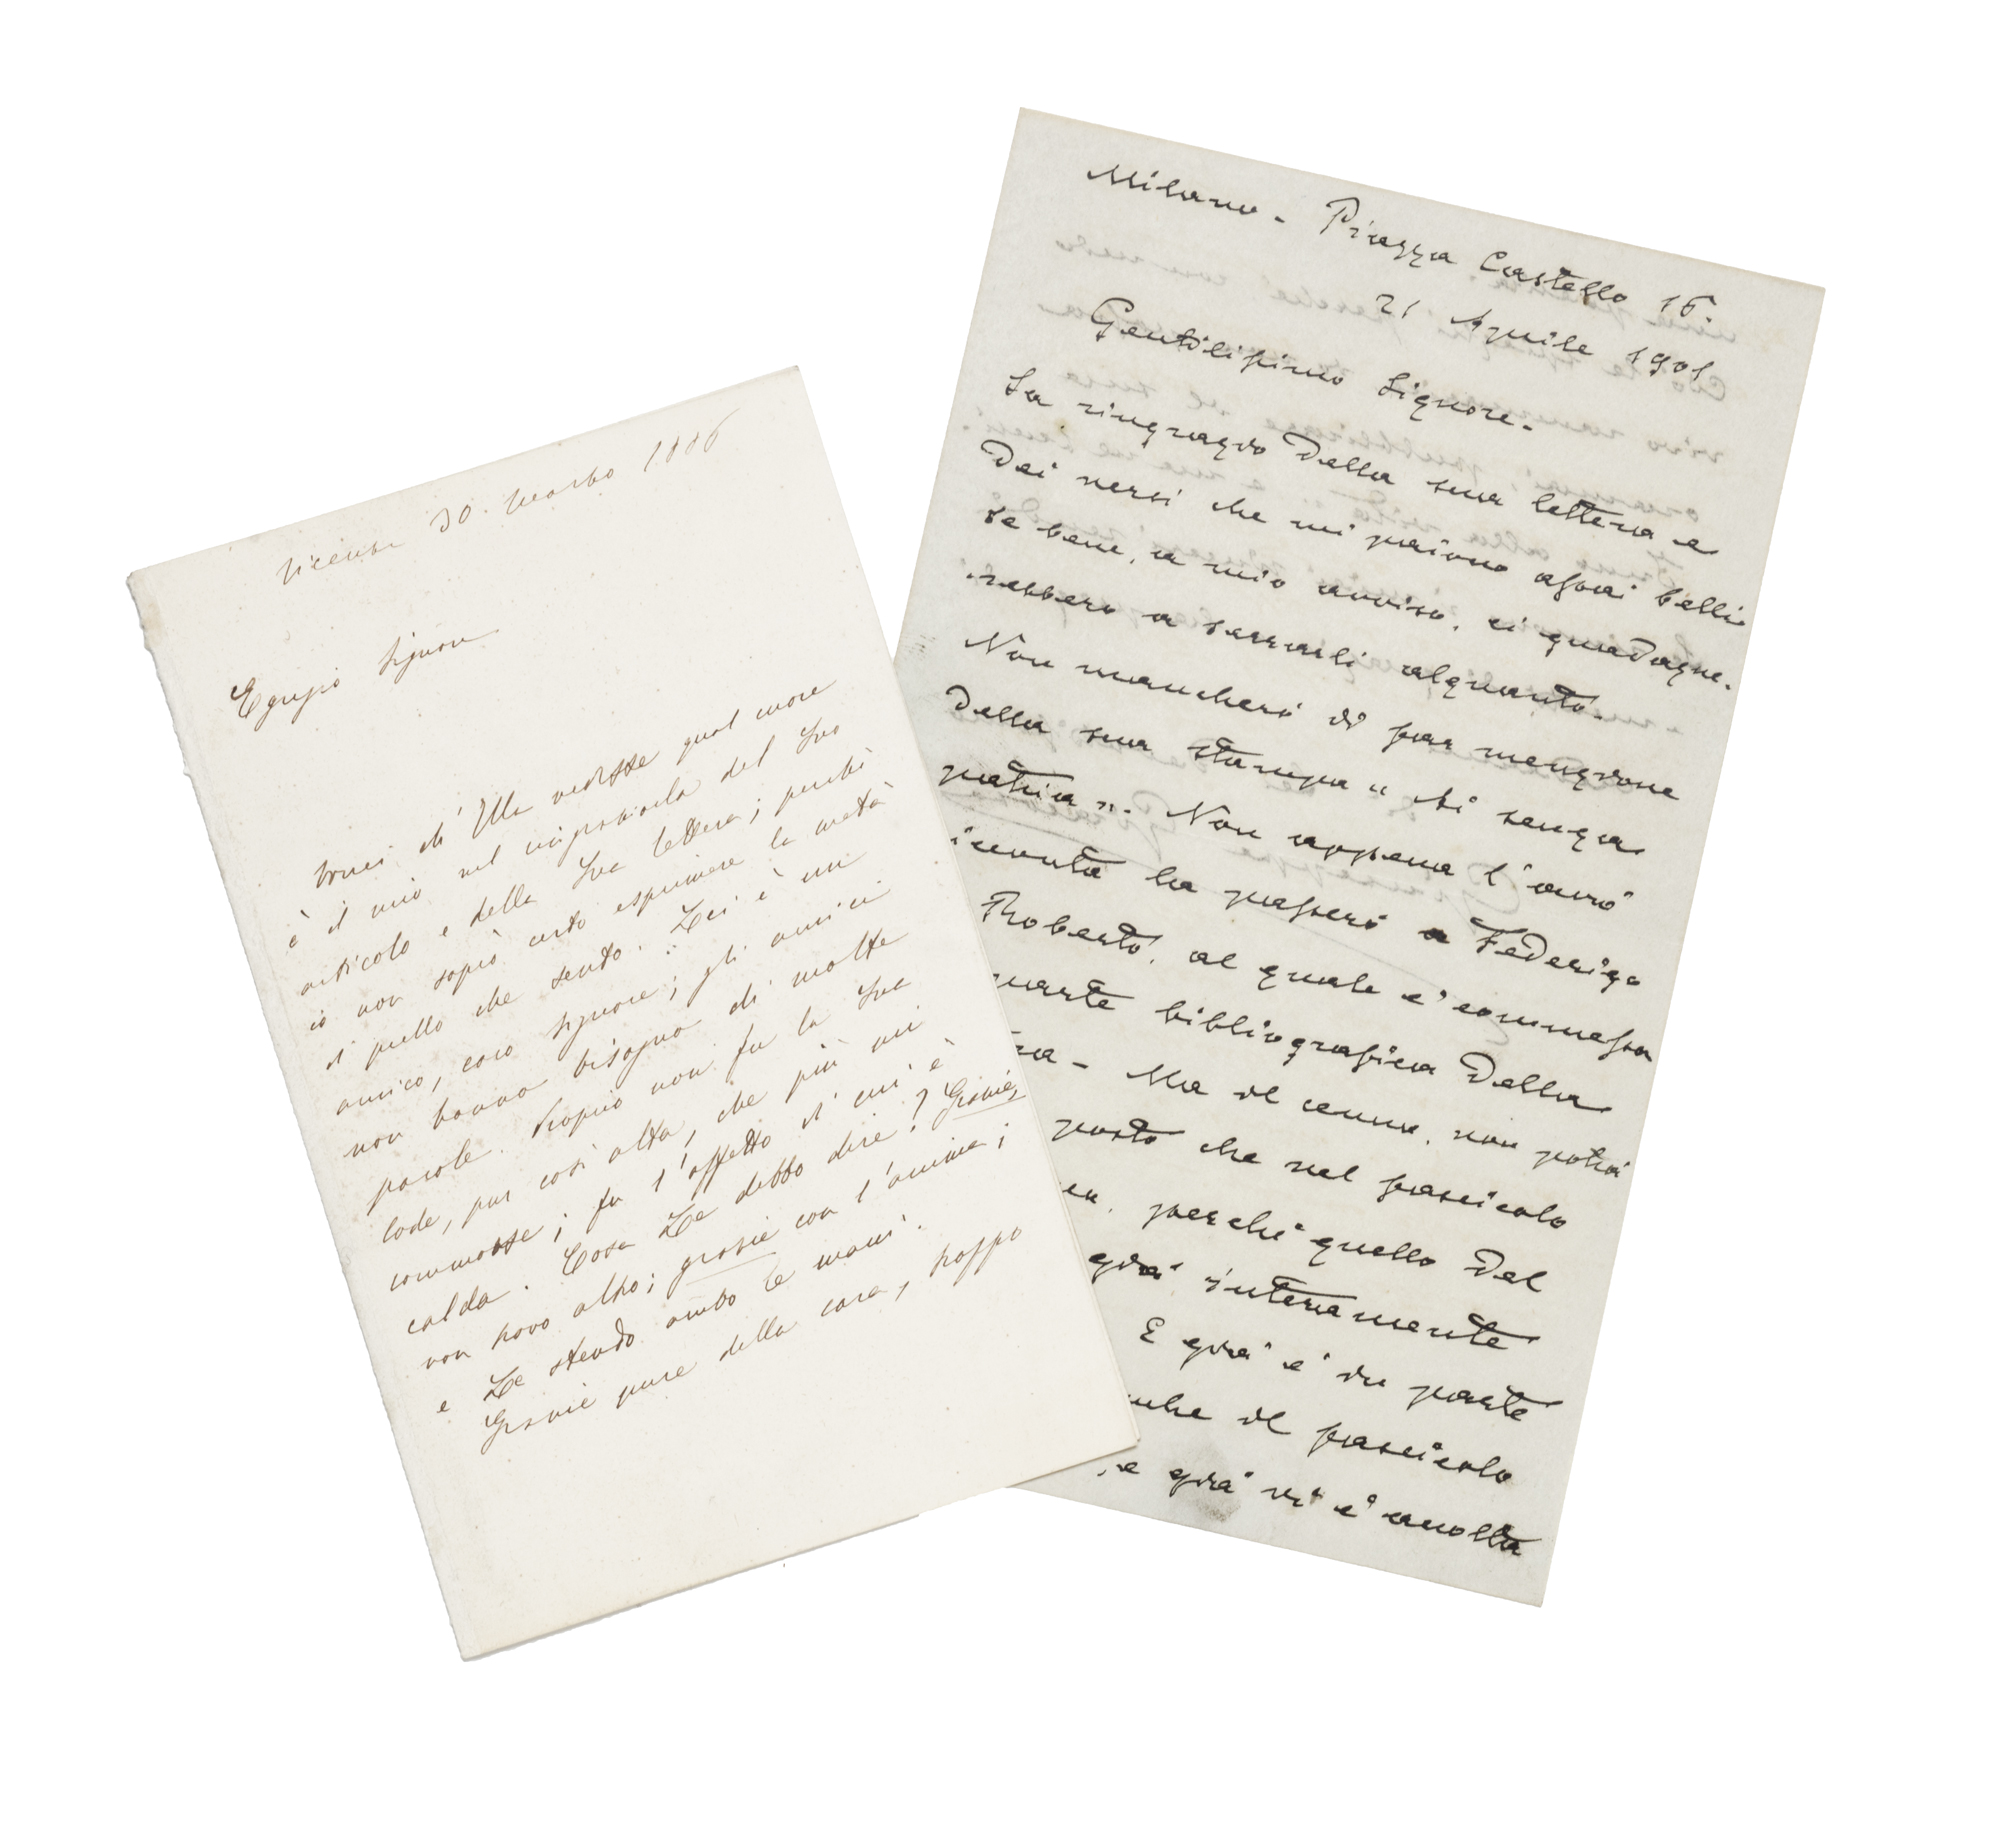 Vicenza 30. Marzo 1886
Egregio Signore
Vorrei ch' Ella vedesse qual cuore
è il mio nel ringraziarla del Suo
articolo e della Sua lettera; perchè
io non saprò certo esprimere la metà
di quello che sento. Lei è un
amico, caro Signore; gli amici
non hanno bisogno di molte
parole. Proprio non fu la Sua
lode, pur così alta, che più mi
commosse; fu l'affetto di cui è
calda. Cosa Le debbo dire? Grazie,
non trovo altro; grazie con l'anima;
e Le stendo ambo le mani.
Grazie pure della cara, troppo
Milano - Piazza Castello 16.
21 Aprile 1901
Gentilissimo Signore.
La ringrazio della sua lettera e
dei versi che mi paiono assai belli
se bene, a mio avviso, ci guadagne-
rebbero a serrarli alquanto.
Non mancherò di far menzione
della sua stampa "Chi senza
patria". Non appena l'avrò
icevuta la passerò a Federigo
Roberto, al quale è commessa
parte bibliografica della
Ma il cenno, non potrà
posto che nel fascicolo
perchè quello del
già interamente
E già è in parte
nche il fascicolo
e già vi è avolta